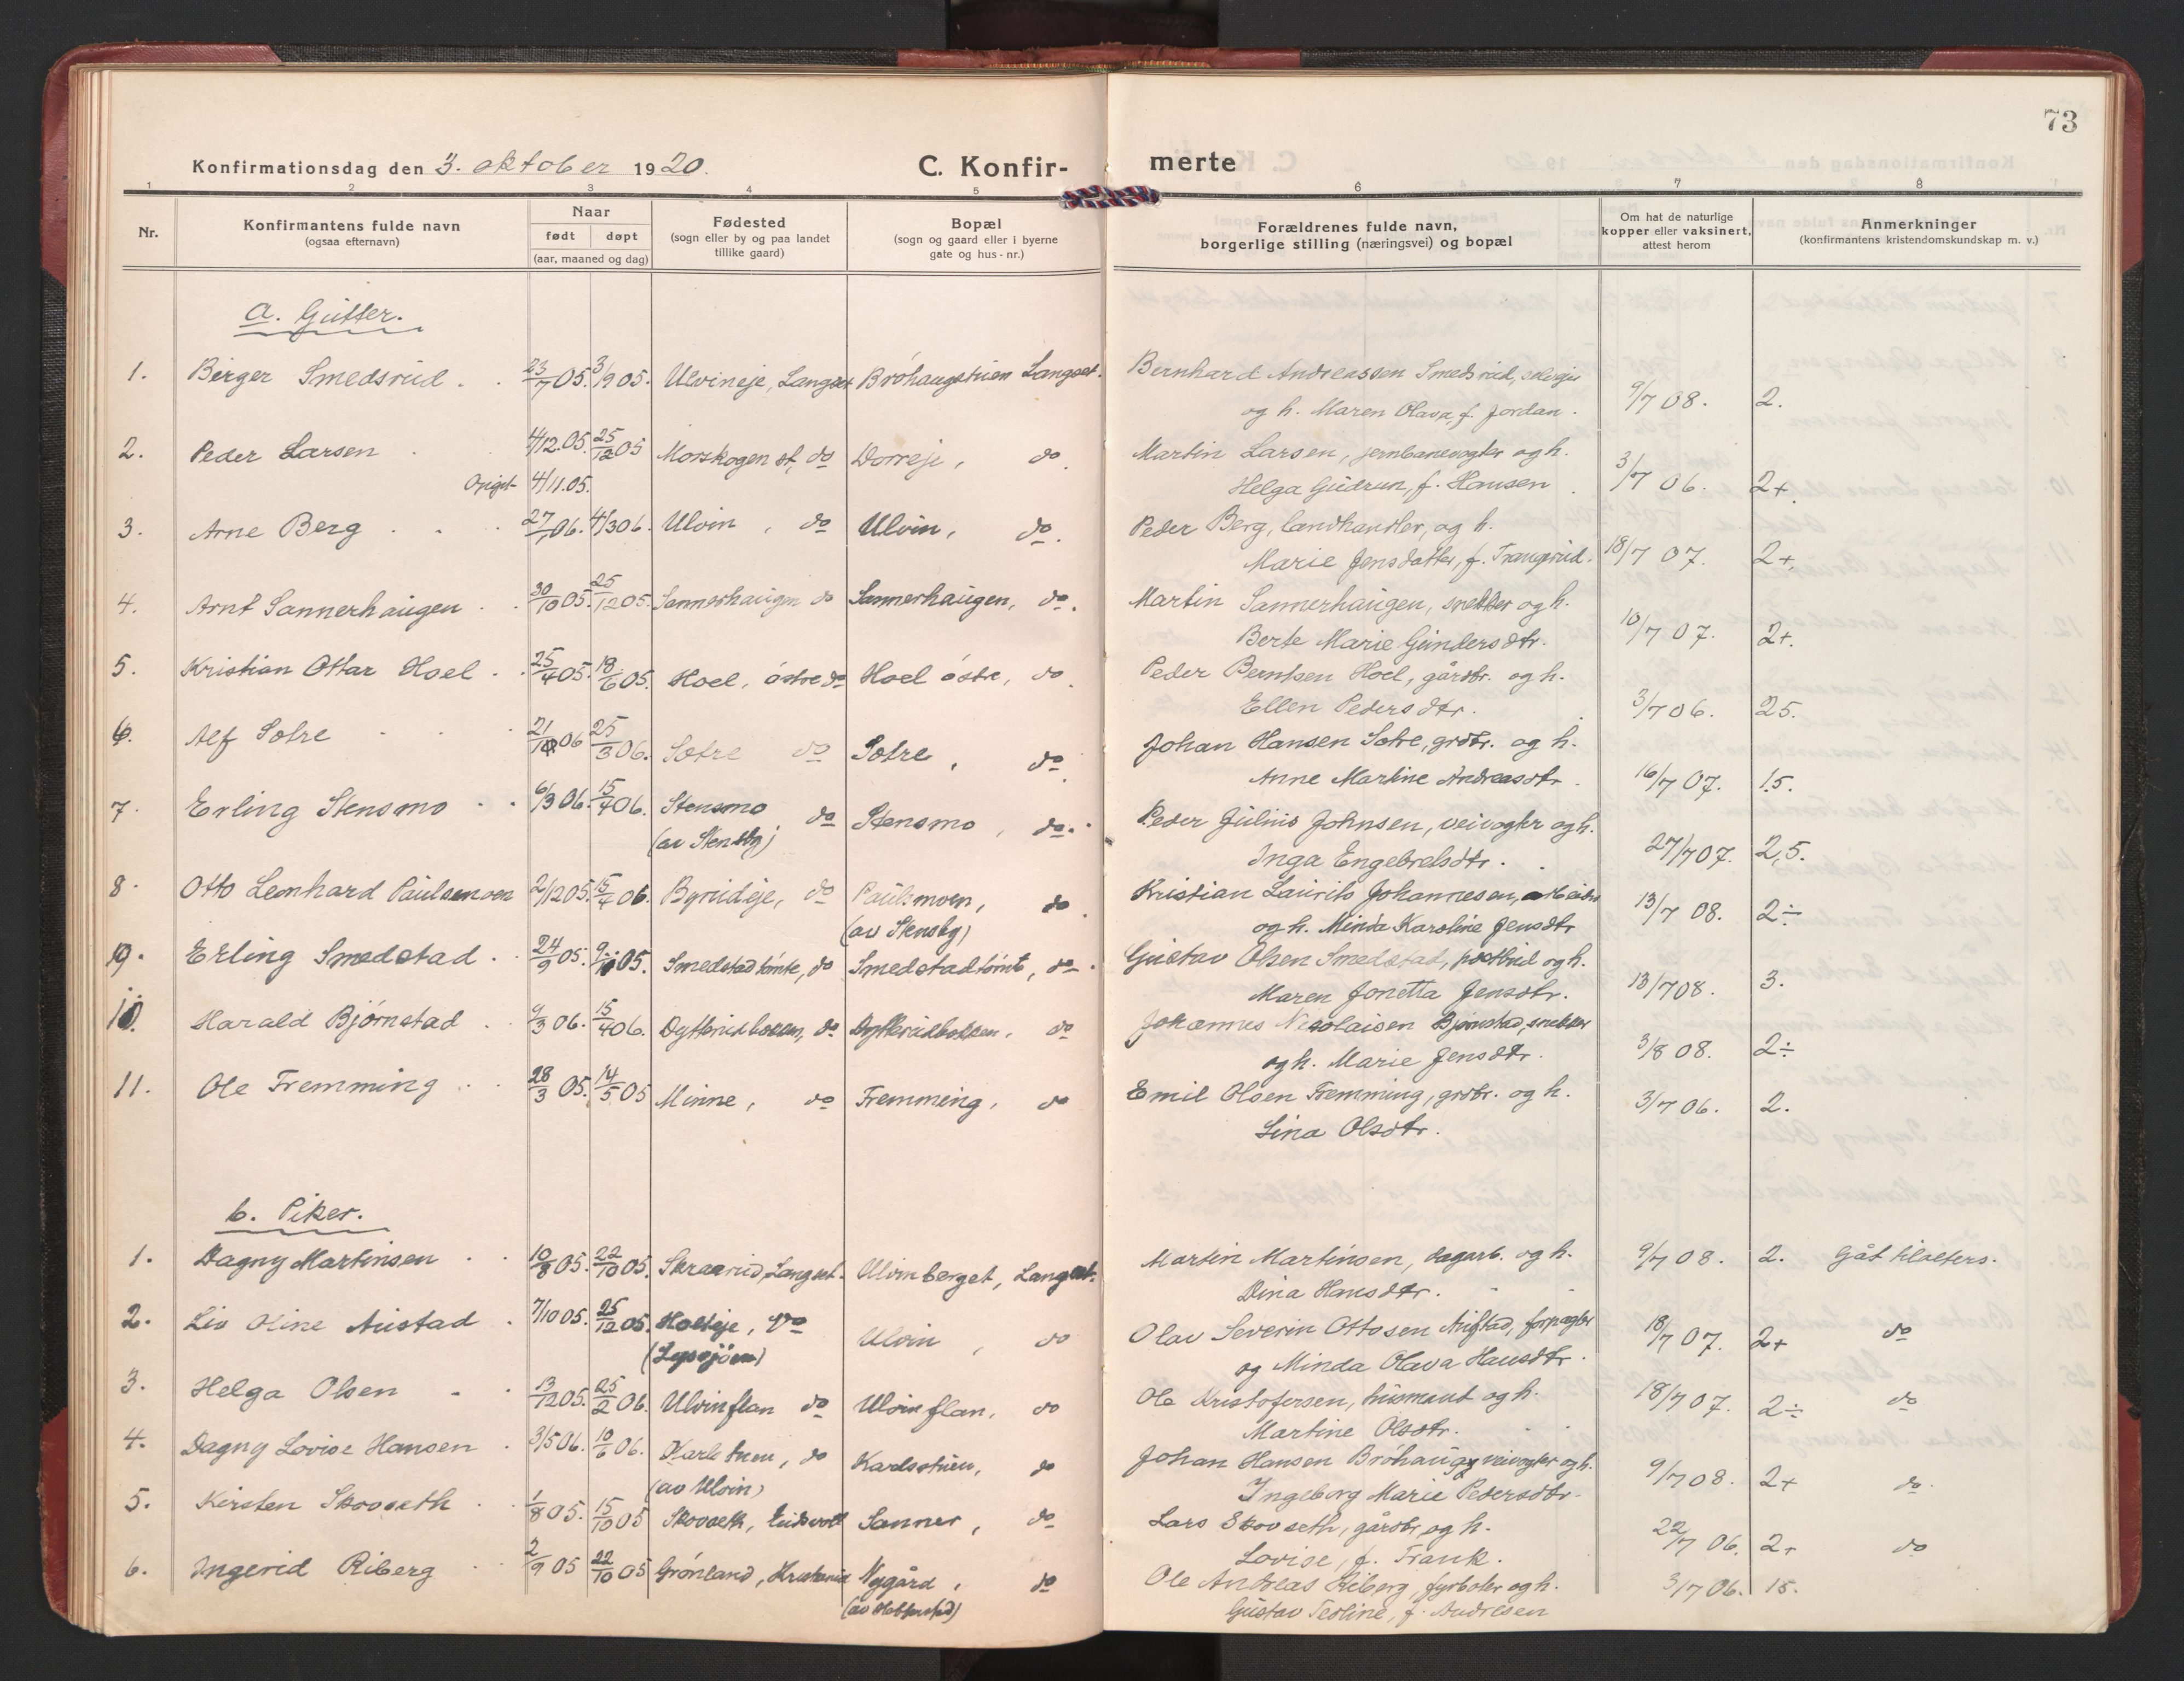 73
Konfirmationsdag den 3. oktober 1920.
C. Konfir-
merte
1 2 3 4 5 6 7 8
Nr.
Konfirmantens fulde navn
(ogsaa efternavn)
Naar
født døpt
(aar, maaned og dag)
Fødested
(sogn eller by og paa landet
tillike gaard)
Bopæl
(sogn og gaard eller i byerne
gate og hus-nr.)
Forældrenes fulde navn,
borgerlige stilling (næringsvei) og bopæl
Om hat de naturlige
kopper eller vaksinert,
attest herom
Anmerkninger
(konfirmantens kristendomskundskap m. v.)
a. Gutter.
1. Berger Smedsrud . . 23/7 05. 3/9 05. Ulvineje, Langset Bróhaugstuen Langset. Bernhard Andreassen Smedsrud,
og h. Maren Olava, f. Jordan. 9/7 08. 2.
2. Peder Larsen . 4/12.05. 25/12 05 Morskogen st, do Dorreje, do. Martin Larsen, jernbanevogter og h.
4/11.05. Helga Gudrun, f. Hansen . 3/7 06. 2+.
3. Arne Berg . . . 27/1 06. 4/3 06. Ulvin, do Ulvin, do. Peder Berg, landhandler, og h.
Marie Jensdatter, f. Trangsrud. 18/7 07. 2+.
4. Arnt Sannerhaugen . . 30/10 05. 25/12 05. Sannerhaugen do Sannerhaugen, do. Martin Sannerhaugen, snekker og h.
Berte Marie Gundersdtr. 10/7 07. 2+.
5. Kristian Ottar Hoel . . 25/4 05. 18/6 05. Hoel, óstre do Hoel óstre, do. Peder Berntsen Hoel, gårdbr. og h.
Ellen Pedersdtr. 3/7 06. 25.
6. Alf Sotre . . . 21/1 06 25/3 06. Sotre do Sotre, do. Johan Hansen Sotre, grdbr. og h.
Anne Martine Andreasdtr. 16/7 07. 1.5.
7. Erling Stensmo . . 6/3 06. 15/4 06. Stensmo do Stensmo, do. Peder Julius Johnsen, veivogter og h.
(av Stensby) Inga Engebretsdtr. . 27/7 07. 2,5.
8. Otto Leonhard Paulsmoen 2/12 05. 15/4 06. Byrudeje, do Paulsmoen, do. Kristian Laurits Johannesen, arbeider
(av Stensby) og h. Minda Karoline Jensdtr 13/7 08. 2÷
9. Erling Smedstad . . 24/9 05. 9/10 05. Smedstadtomte, do Smedstadtomt, do. Gustav Olsen Smedstad, postbud og h.
Maren Jonetta Jensdtr. 13/7 08. 3.
10. Harald Bjórnstad . . 9/3 06. 15/4 06. Dytterudbakken, do Dytterudbakken, do Johannes Nicolaisen Bjornstad, snekker
og h. Marie Jensdtr. 3/8 08. 2÷
11. Ole Fremming . . 28/3 05. 14/5 05 Minne, do Fremming, do Emil Olsen Fremming, grdbr. og h.
Lina Olsdtr. 3/7 06. 2.
b. Piker.
1. Dagny Martinsen . . 10/8 05. 22/10 05. Skraarud, Langset. Ulvinberget, Langset. Martin Martinsen, dagarb. og h.
Dina Hansdtr. 9/7 08. 2. Gåt tilalters.
2. Liv Oline Austad . 7/10 05. 25/12 05. Holteje, do Ulvin, do Olav Severin Ottosen Austad, forpagter
(Lyssjöen) og Minda Olava Hansdtr. 18/7 07. 2+ do
3. Helga Olsen . . 13/12 05. 25/2 06. Ulvinflan do Ulvinflan, do Ole Kristofersen, husmand og h.
Martine Olsdtr. 18/7 07. 2÷ do
4. Dagny Lovise Hansen . 3/5 06. 10/6 06. Karlstuen, do Karlsstuen, do Johan Hansen Bróhaug, veivogter og h.
(av Ulvin) Ingeborg Marie Pedersdtr. 9/7 08. 2+ do.
5. Kirsten Skovseth . . 1/8 05. 15/10 05 Skovseth, Eidsvoll Sanner, do Lars Skovseth, gårdbr. og h.
Lovise, f. Frank. 22/7 06. 2+ do
6. Ingerid Riberg . . 2/9 05 22/10 05 Grónland, Kristiania Nygård, do Ole Andreas Riberg, fyrbøter og h.
Gustav Tesline, f. Andresen 3/7 06. 15.